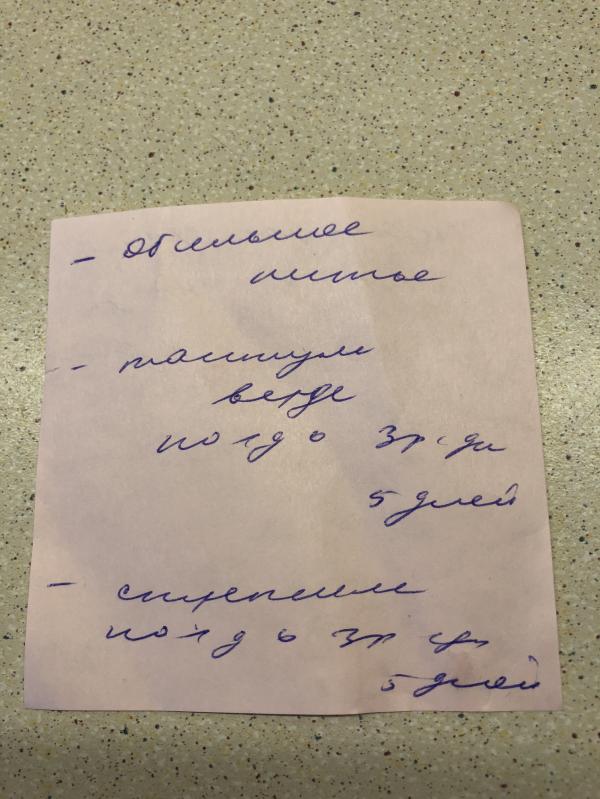 - обильное
питье
- тантум
верде
по 1 д о 3 р в д
5 дней
- стрепсилс
по 1 д о 3 р в д
5 дней